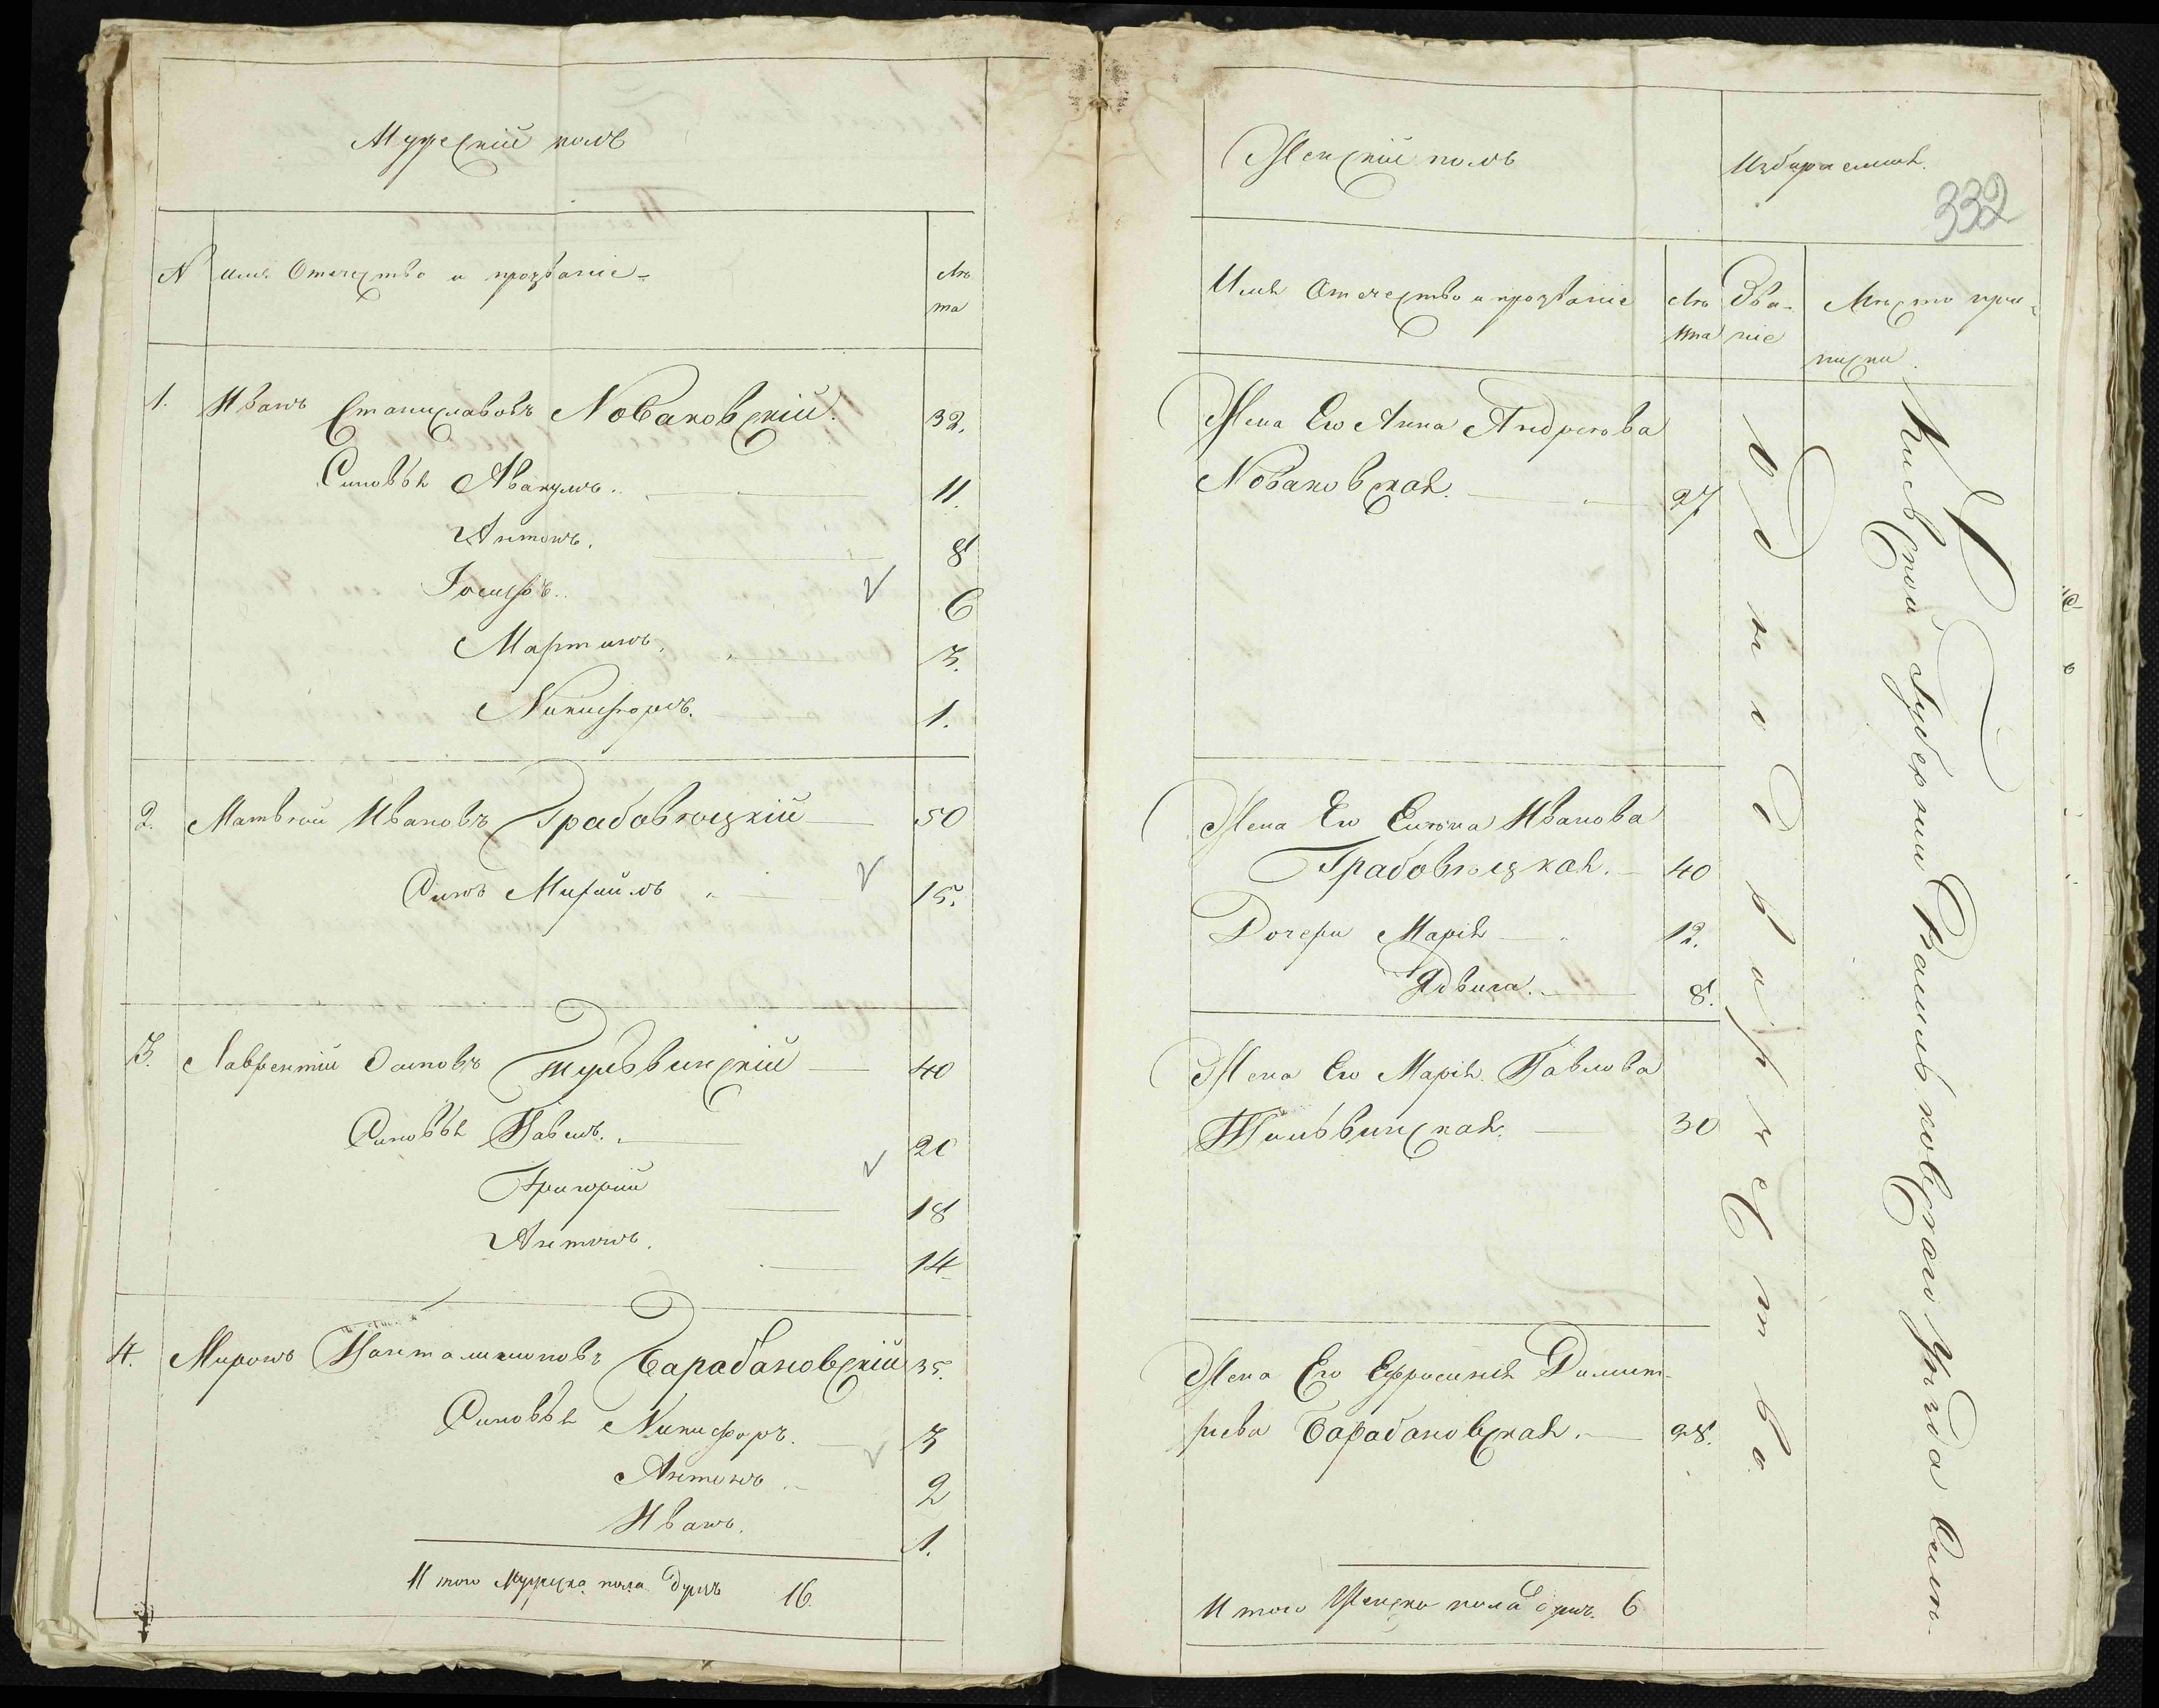 Мужескій полъ
N Имя Отечество и прозваніе Лѣта
1. Иванъ Станиславовъ Новаковскій. 32.
Сыновья Авакумъ. 11
Антонъ. 8
Іосифъ. 6
Мартинъ. 3.
Никифоръ. 1.
2. Матвѣй Ивановъ Грабовѣцкій 50
Сынъ Михайлъ 15.
3. Лаврентий Осиповъ 40
Сыновья Павелъ. 20
Григорий 18
Антонъ. 14
4. Миронъ Панталимоновъ Барабановскій 35.
Сыновья Никифоръ. 3
Антонъ 2
Иванъ. 1.
Итого Мужеска пола душъ 16.
Женскій полъ
Избираемыя.
332
Имя Отечество и прозваніе Лѣта Званіе Мѣсто приписки
Жена Его Анна Андреева
Новаковская. 27
Жена Его Ивановa
Грабовѣцкая. 40
Дочери Марія 12.
Ядвига. 8.
Жена Его Марія Павлова
30
Жена Его Ефросинія Димит-
риева Барабановская. 28.
Итого Женска пола душъ. 6
однодворчество
Киевской Губернии Васильковскаго уѣзда Сели-